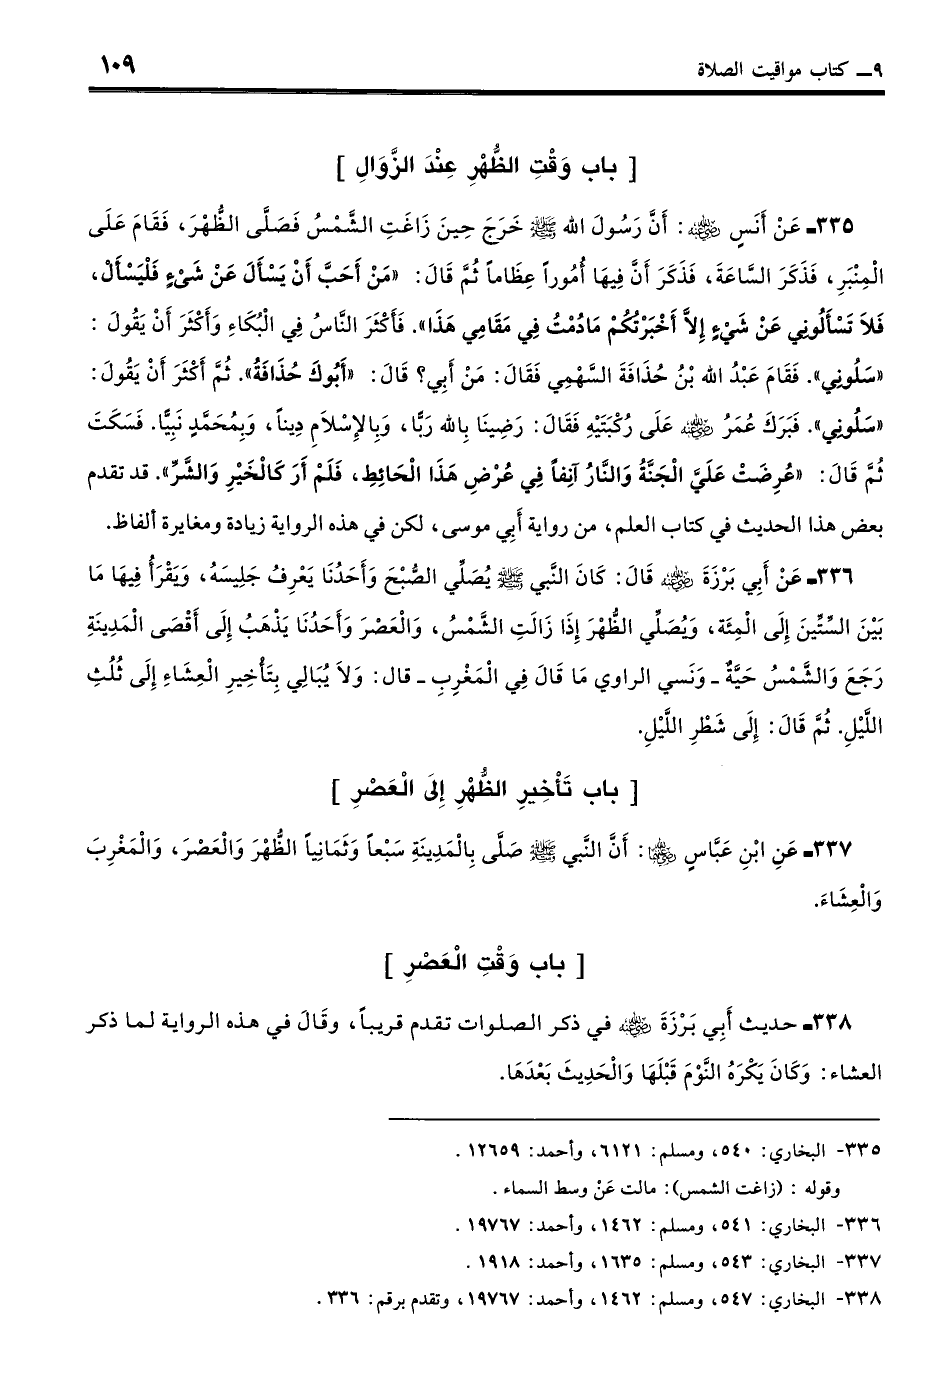 ٩ـ كتاب مواقيت الصلاة
١٠٩
[ باب وَقْتِ الظُّهْرِ عِنْدَ الزَّوَالِ ]
٣٣٥ـ عَنْ أَنَسٍ رضي الله عنه: أَنَّ رَسُولَ الله ﷺ خَرَجَ حِينَ زَاغَتِ الشَّمْسُ فَصَلَّى الظُّهْرَ، فَقَامَ عَلَى
الْمِنْبَرِ، فَذَكَرَ السَّاعَةَ، فَذَكَرَ أَنَّ فِيهَا أُمُوراً عِظَاماً ثُمَّ قَالَ: «مَنْ أَحَبَّ أَنْ يَسْأَلَ عَنْ شَيْءٍ فَلْيَسْأَلْ،
فَلاَ تَسْأَلُونِي عَنْ شَيْءٍ إِلاَّ أَخْبَرْتُكُمْ مَادُمْتُ فِي مَقَامِي هَذَا». فَأَكْثَرَ النَّاسُ فِي الْبُكَاءِ وَأَكْثَرَ أَنْ يَقُولَ :
«سَلُونِي». فَقَامَ عَبْدُ الله بْنُ حُذَافَةَ السَّهْمِي فَقَالَ: مَنْ أَبِي؟ قَالَ: «أَبُوكَ حُذَافَةُ». ثُمَّ أَكْثَرَ أَنْ يَقُولَ:
«سَلُونِي». فَبَرَكَ عُمَرُ رضي الله عنه عَلَى رُكْبَتَيْهِ فَقَالَ: رَضِينَا بِالله رَبًّا، وَبِالإِسْلاَمِ دِيناً، وَبِمُحَمَّدٍ نَبِيًّا. فَسَكَتَ
ثُمَّ قَالَ: «عُرِضَتْ عَلَيَّ الْجَنَّةُ وَالنَّارُ آنِفاً فِي عُرْضِ هَذَا الْحَائِطِ، فَلَمْ أَرَ كَالْخَيْرِ وَالشَّرِّ». قد تقدم
بعض هذا الحديث في كتاب العلم، من رواية أَبي موسى، لكن في هذه الرواية زيادة ومغايرة ألفاظ.
٣٣٦ـ عَنْ أَبِي بَرْزَةَ رضي الله عنه قَالَ: كَانَ النَّبي ﷺ يُصَلِّي الصُّبْحَ وَأَحَدُنَا يَعْرِفُ جَلِيسَهُ، وَيَقْرَأُ فِيهَا مَا
بَيْنَ السِّتِّينَ إِلَى الْمِئَة، وَيُصَلِّي الظُّهْرَ إِذَا زَالَتِ الشَّمْسُ، وَالعَصْرَ وَأَحَدُنَا يَذْهَبُ إِلَى أَقْصَى الْمَدِينَةِ
رَجَعَ وَالشَّمْسُ حَيَّةٌ ـ وَنَسي الراوي مَا قَالَ فِي الْمَغْرِبِ ـ قال: وَلاَ يُبَالِي بِتَأْخِيرِ الْعِشَاءِ إِلَى ثُلُثِ
اللَّيْلِ. ثُمَّ قَالَ: إِلَى شَطْرِ اللَّيْلِ.
[ باب تَأْخِيرِ الظُّهْرِ إِلَى الْعَصْرِ ]
٣٣٧ـ عَنِ ابْنِ عَبَّاسٍ رضي الله عنهما: أَنَّ النَّبي ﷺ صَلَّى بِالْمَدِينَةِ سَبْعاً وَثَمَانِياً الظُّهْرَ وَالْعَصْرَ، وَالْمَغْرِبَ
وَالْعِشَاءَ.
[ باب وَقْتِ الْعَصْرِ ]
٣٣٨ـ حديث أَبِي بَرْزَةَ رضي الله عنه في ذكر الصلوات تقدم قريباً، وقَالَ في هذه الرواية لما ذكر
العشاء: وَكَانَ يَكْرَهُ النَّوْمَ قَبْلَهَا وَالْحَدِيثَ بَعْدَهَا.
٣٣٥- البخاري: ٥٤٠، ومسلم: ٦١٢١، وأحمد: ١٢٦٥٩ .
وقوله : (زاغت الشمس): مالت عَنْ وسط السماء .
٣٣٦- البخاري: ٥٤١، ومسلم: ١٤٦٢، وأحمد: ١٩٧٦٧ .
٣٣٧- البخاري: ٥٤٣، ومسلم: ١٦٣٥، وأحمد: ١٩١٨ .
٣٣٨- البخاري: ٥٤٧، ومسلم: ١٤٦٢، وأحمد: ١٩٧٦٧، وتقدم برقم: ٣٣٦ .